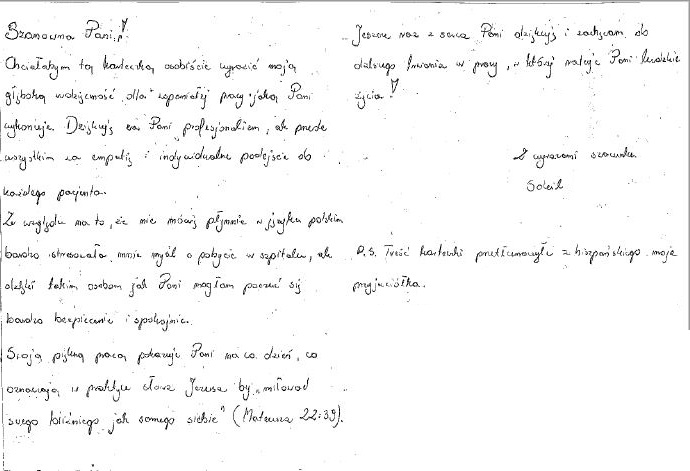 Szanowna Pani!
Chciałabym tą karteczką osobiście wyrazić moją
głęboką wdzięczność dla wspaniałej pracy jaką Pani
wykonuje. Dziękuję za Pani profesjonalizm, ale przede
wszystkim za empatię i indywidualne podejście do
każdego pacjenta.
Ze względu na to, że nie mówię płynnie w języku polskim
bardzo stresowała mnie myśl o pobycie w szpitalu, ale
dzięki takim osobom jak Pani mogłam poczuć się
bardzo bezpiecznie i spokojnie.
Swoją piękną pracą pokazuje Pani na co dzień, co
oznaczają w praktyce słowa Jezusa by „miłować
swego bliźniego jak samego siebie" (Mateusza 22:39).
Jeszcze raz z serca Pani dziękuję i zachęcam do
dalszego trwania w pracy, w której ratuje Pani ludzkie
życia!
Z wyrazami szacunku
Soleil
P.S. Treść kartecki przetłumaczyła z hiszpańskiego moja
przyjaciółka.